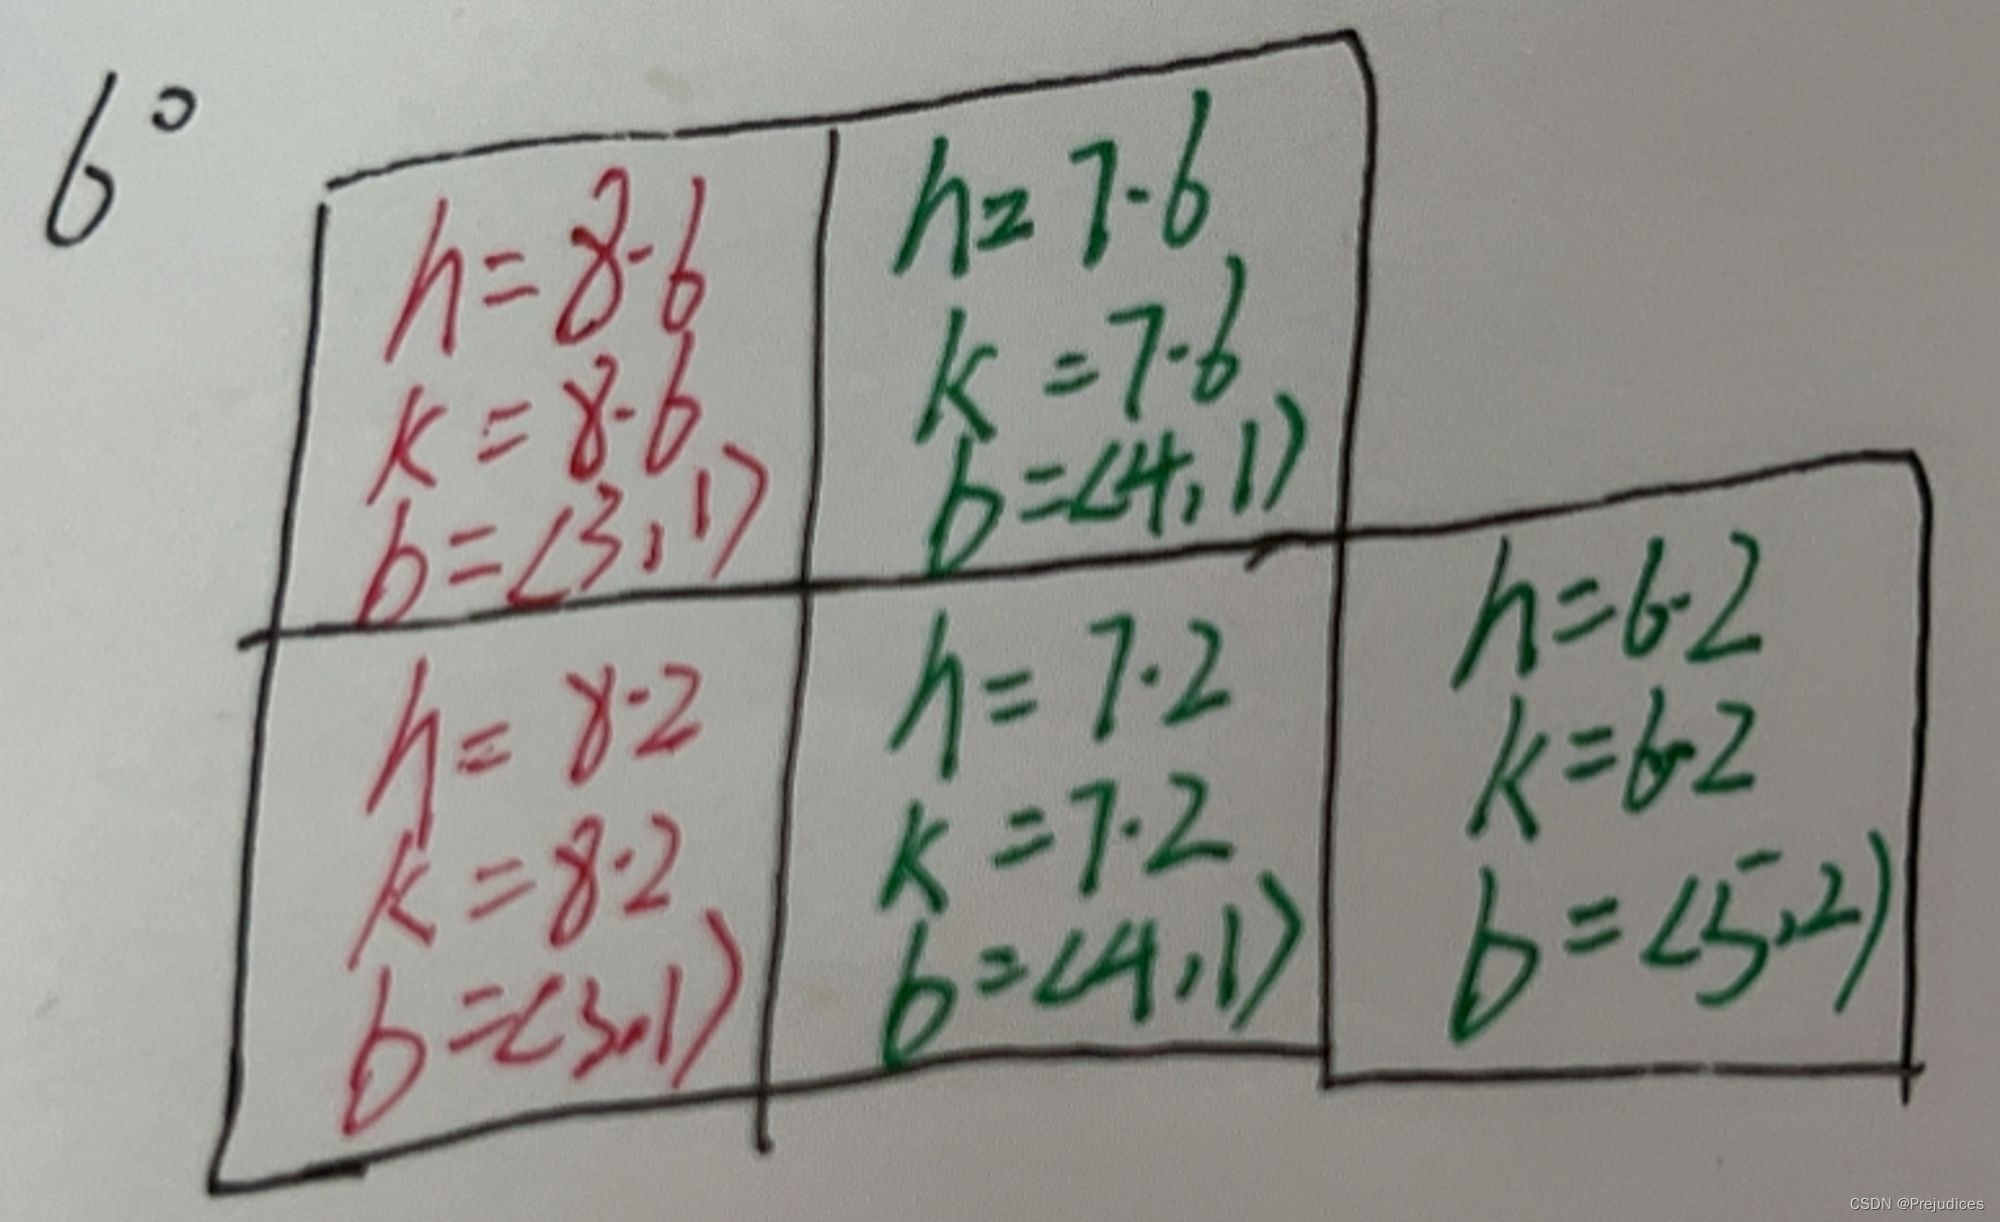 6°
h=8.6
k=8.6
b=<3,1>
h=7.6
k=7.6
b=<4,1>
h=8.2
k=8.2
b=<3,1>
h=7.2
k=7.2
b=<4,1>
h=6.2
k=6.2
b=<5,2>
CSDN @Prejudices